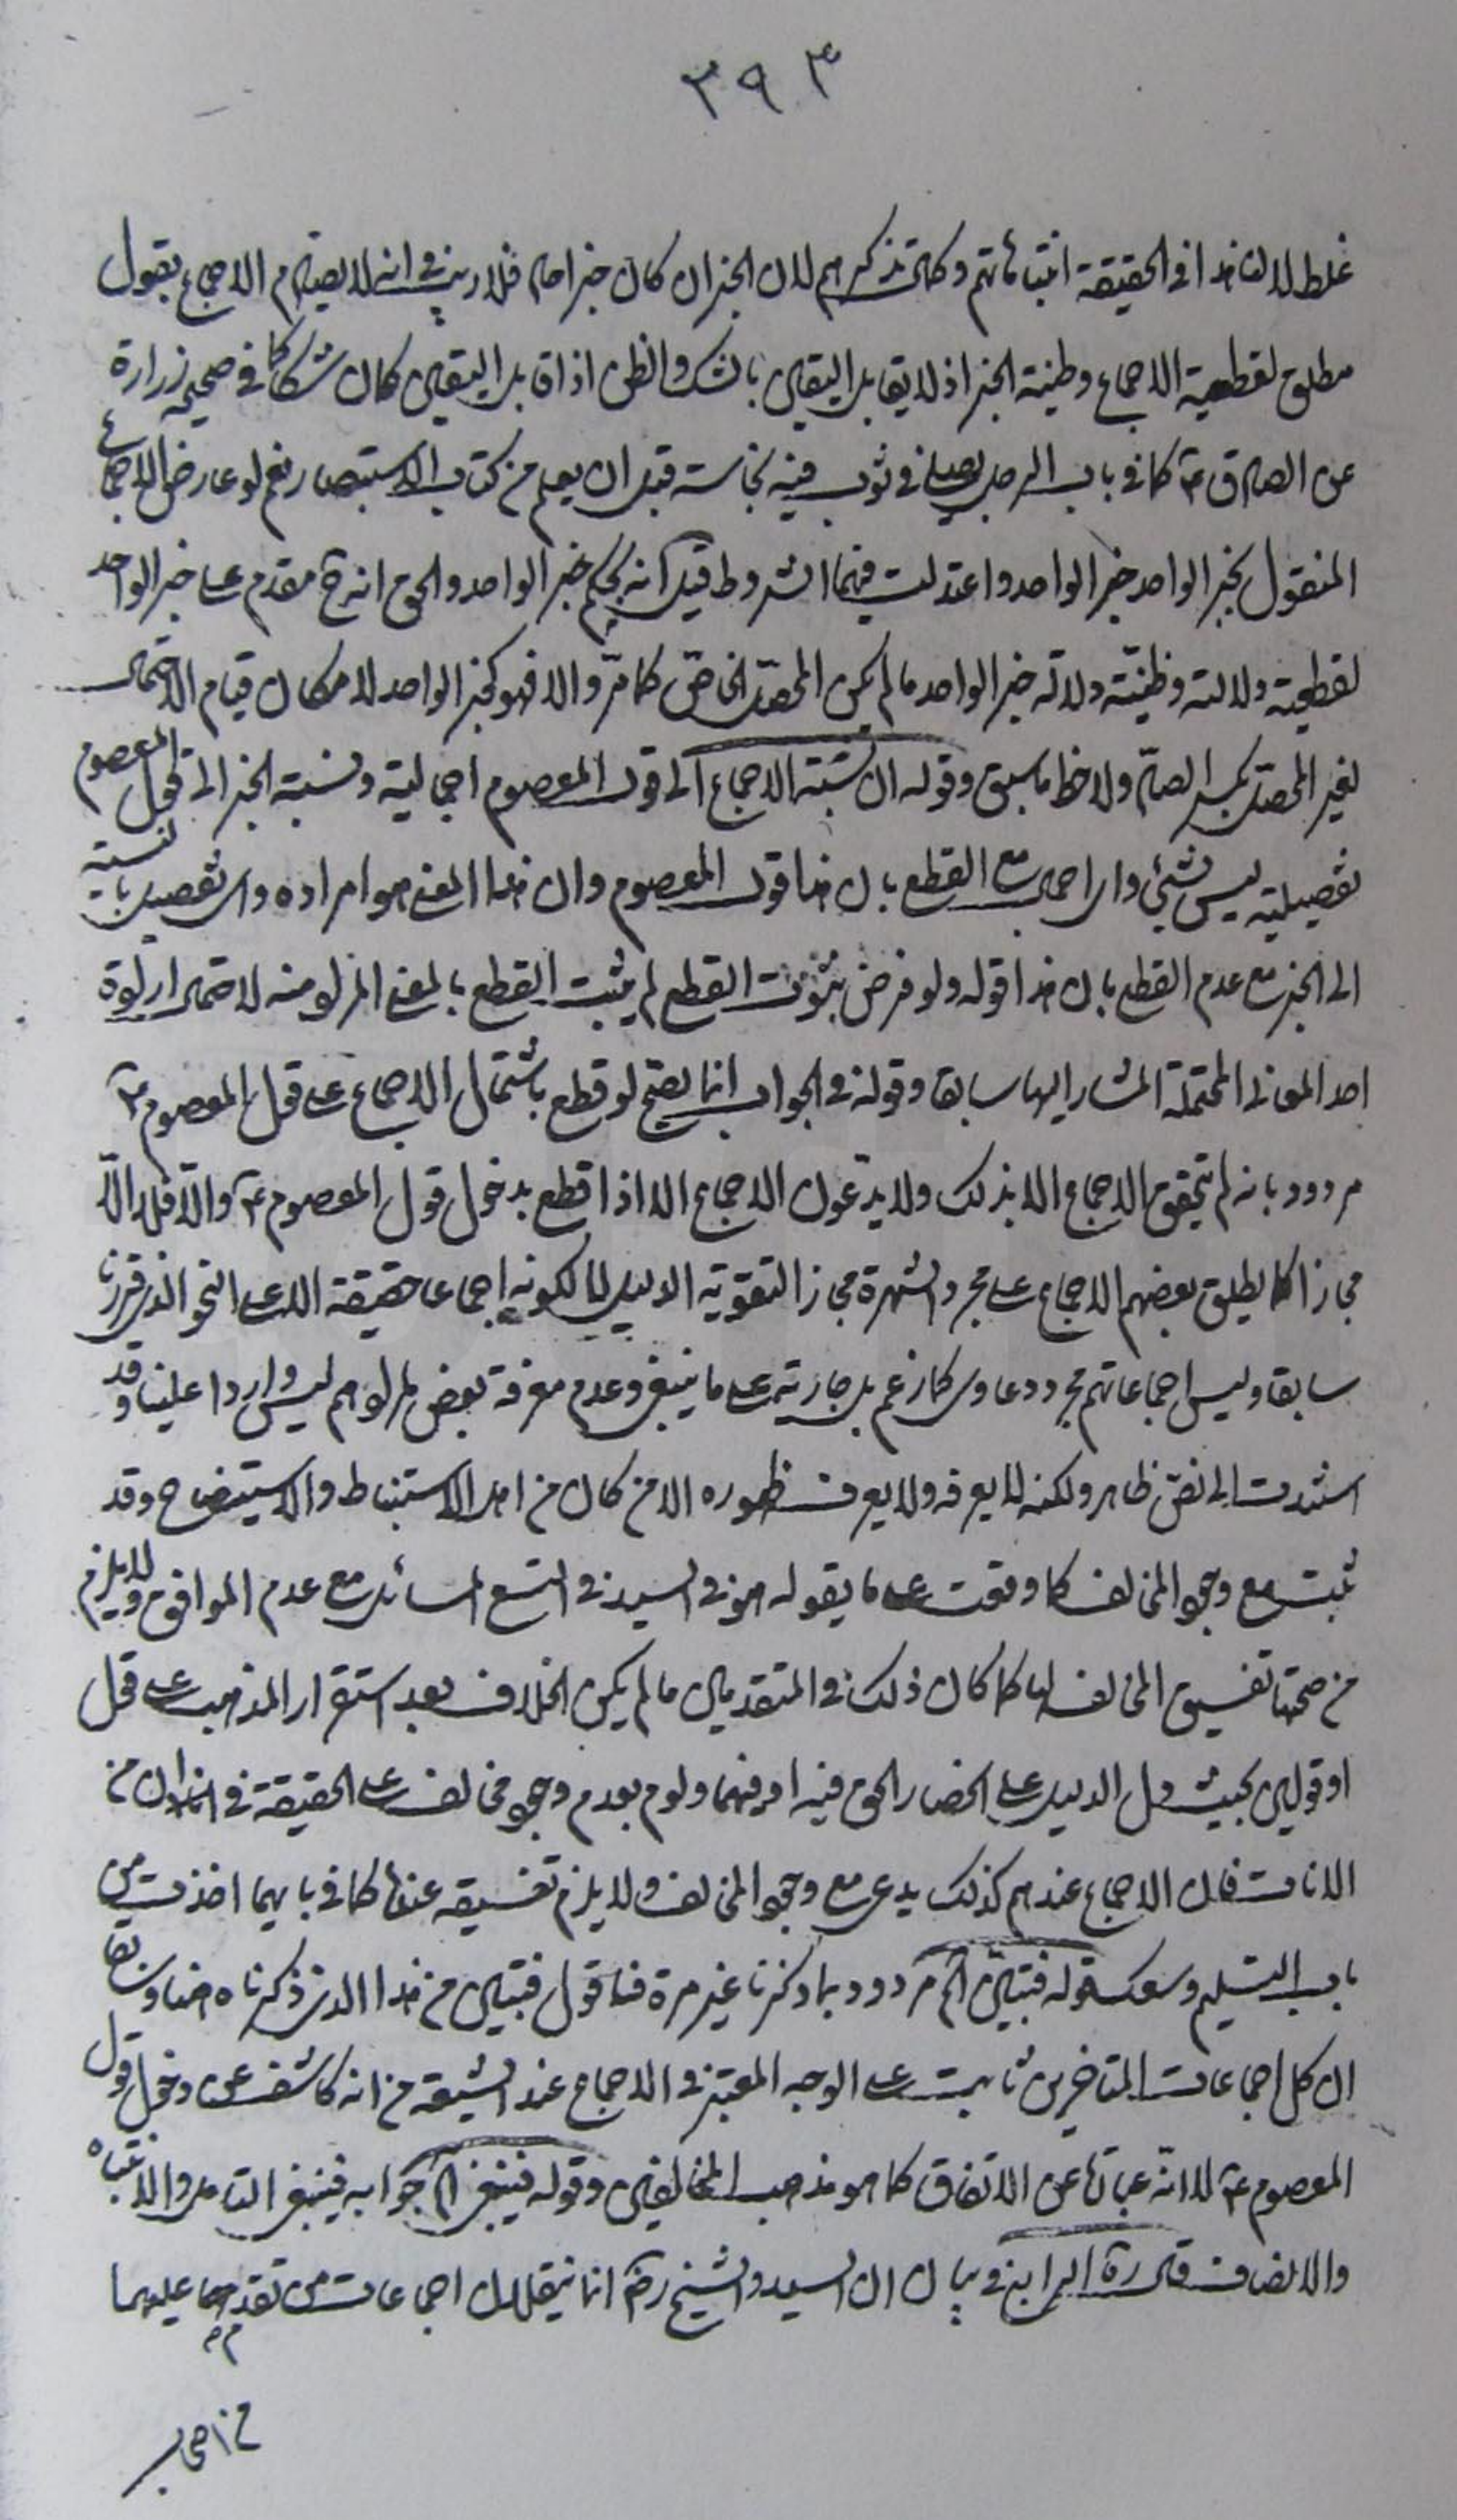 ٣٩٣
غلط لان هذا في الحقيقة انتباهاتهم وكمال تذكرهم لان الخبر ان كان خبر احاد فلا ريب في انه لا يصادم الاجماع بقول
مطلق لقطعية الاجماع وظنية الخبر اذ لا يقابل اليقين بالشك والظن اذا قابل اليقين كان شكا كما في صحيح زرارة
عن الصادق ع كما في باب الرجل يصلي في ثوب فيه نجاسة قبل ان يعلم من كتاب الاستبصار نعم لو عارض الاجماع
المنقول بخبر الواحد خبر الواحد واعتدلت فيهما الشروط قيل انه بحكم خبر الواحد والحق انه ح مقدم على خبر الواحد
لقطعية دلالته وظنيّة دلالة خبر الواحد ما لم يكن المحصّل الخاصّ كما مرّ والا فهو كخبر الواحد لامكان قيام الاحتمال
لغير المحصّل بكسر الصاد ولاحظ ما سبق وقوله ان نسبة الاجماع الى قول المعصوم اجمالية ونسبة الخبر الى قول المعصوم
تفصيلية ليس بشيء واي اجمال مع القطع بان هذا قول المعصوم وان هذا المعنى هو مراده واي تفصيل بالنسبة
الى الخبر مع عدم القطع بان هذا قوله ولو فرض ثبوت القطع لم يثبت القطع بالمعنى المراد منه لاحتمال ارادة
احد المعاني المحتملة المشار اليها سابقا وقوله في الجواب انما يصح لو قطع باشتمال الاجماع على قول المعصوم ع
مردود بانه لم يتحقق الاجماع الا بذلك ولا يدّعون الاجماع الا اذا قطع بدخول قول المعصوم ع والّا فلا الّا
مجازا كما يطلق بعضهم الاجماع على مجرد الشهرة مجازا لتقوية الدليل لا لكونه اجماعا حقيقة الا على النحو الذي قررنا
سابقا وليس اجماعاتهم مجرد دعاوى كما زعم بل جارية على ما ينبغي وعدم معرفة بعض لمرادهم ليس واردا علينا وقد
استندت الى نصّ ظاهر ولكنه لا يعرفه ولا يعرف ظهوره الا من كان من اهل الاستنباط والاستيضاح وقد
ثبت مع وجود المخالف كما وقعت على ما يقوله هو في السيد في التسع المسائل مع عدم الموافق ولا يلزم
من صحتها تفسيق المخالف لها كما كان ذلك في المتقدمين ما لم يكن الخلاف بعد استقرار المذهب على قول
او قولين بحيث دل الدليل على انحصار الحق فيه او فيهما ولوم بعدم وجود مخالف على الحقيقة في من
فان الاجماع عندهم كذلك يدعى مع وجود المخالف ولا يلزم تفسيقه عندنا كما في بابهما اخذت من
باب التسليم وسعك وقوله فتبيّن الخ مردود بما ذكرنا غير مرة فنقول فتبين من هذا الذي ذكرناه هنا وسابقا
ان كل اجماعات المتاخرين ثابت على الوجه المعتبر في الاجماع عند الشيعة من انه كاشف عن دخول قول
المعصوم ع لا انّه عبارة عن الاتفاق كما هو مذهب المخالفين وقوله فينبغي الخ جوابه فينبغي التامل والانتباه
والانصاف في بيان ان السيد والشيخ رضي انما ينقلان اجماعات من تقدم عليهما
من اصحاب